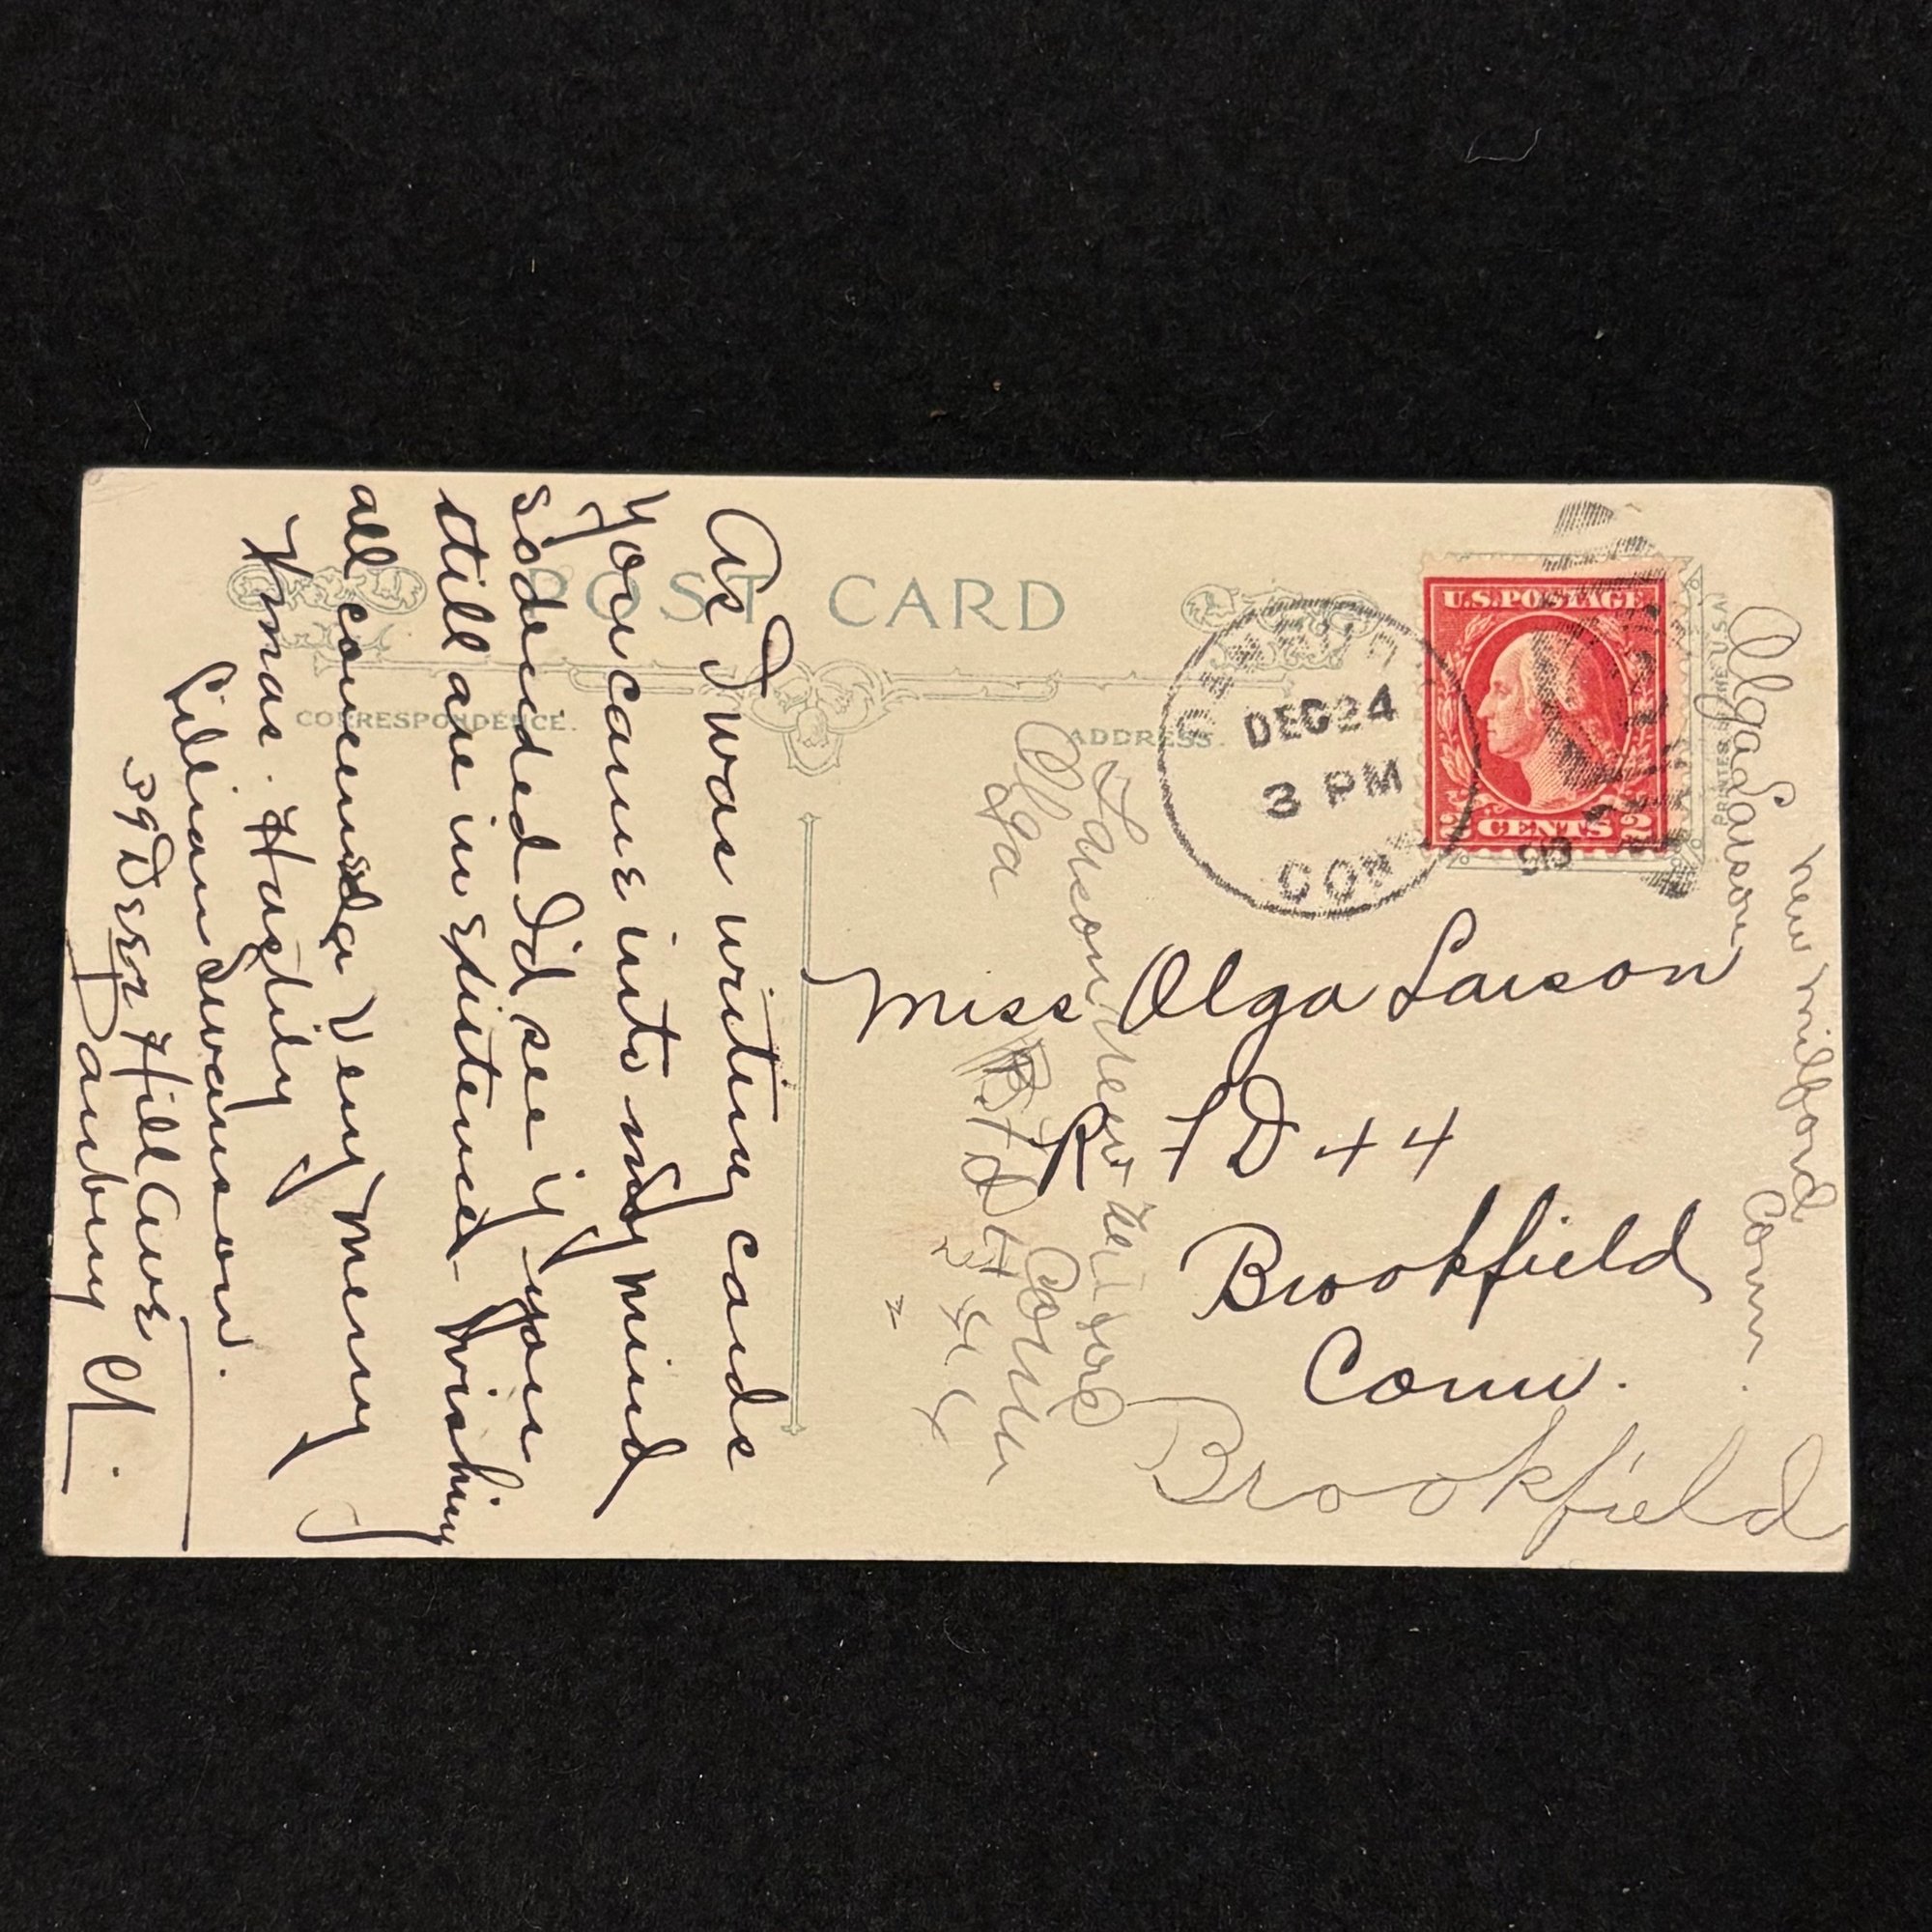 POST CARD
CORRESPONDENCE.
ADDRESS.
PRINTED IN THE U.S.A.
U.S.POSTAGE
2 CENTS 2
DEC 24
3 PM
CONN
As I was writing cards
you came into my mind
so deceided I'd see if you
still are in existence wishing
all concerned a very merry
Xmas. Hastily
Lillian Swanson.
39 Deer Hill Ave
Danbury Ct.
Miss Olga Larson
R F D + 4
Brookfield
Conn.
Brookfield
Olga Larson
New Milford
Conn.
Olga
Larson
Conn